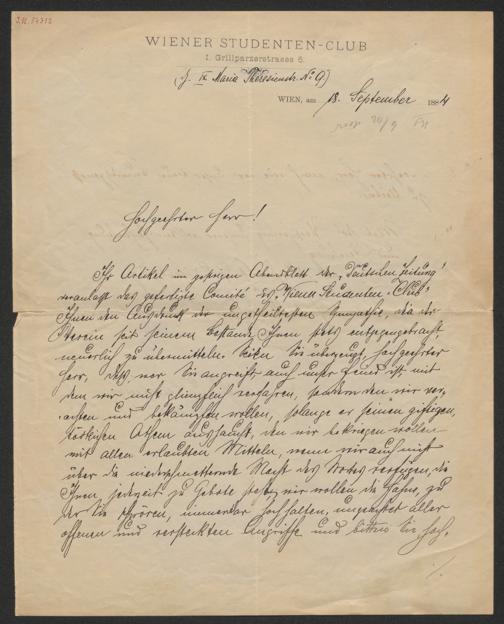 J.N. 54712
WIENER STUDENTEN-CLUB
I. Grillparzerstrasse 5.
(j. IX Maria Theresienstr. No 9)
WIEN, am 18. September 1884
Hochgeehrter Herr!
Ihr Artikel im gestrigen Abendblatt der „Deutschen Zeitung“
veranlaßt das gefertigte Comité des „Wiener Studenten-Club“
Ihnen den Ausdruck der ungetheiltesten Sympathie, die der
Verein seit seinem Bestande Ihnen stets entgegenbringt,
neuerlich zu übermitteln. Seien Sie überzeugt, hochgeehrter
Herr, daß wer Sie angreift auch unser Feind ist mit
dem wir nicht glimpflich verfahren, sondern den wir ver-
achten und bekämpfen wollen, solange er seinen giftigen,
tückischen Athem aushaucht, den wir bekriegen wollen
mit allen erlaubten Mitteln, wenn wir auch nicht
über die niederschmetternde Macht des Wortes verfügen, die
Ihnen jederzeit zu Gebote steht; wir wollen die Fahne, zu
der Sie schwören, immerdar hochhalten, ungeachtet aller
offenen und versteckten Angriffe und bitten Sie hoch-
./.